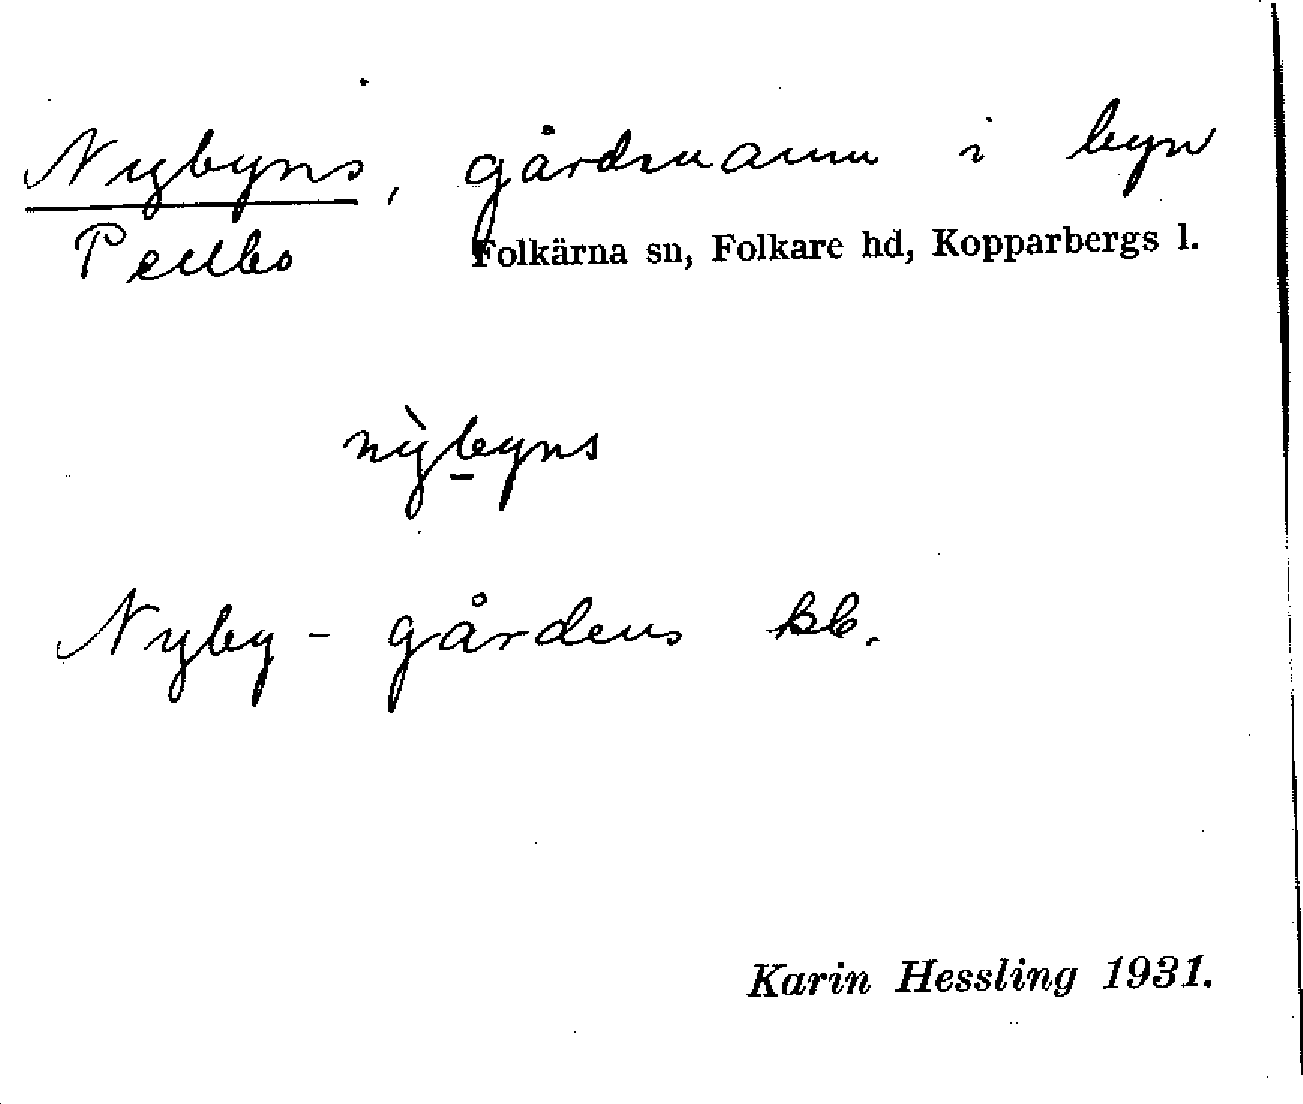 Nybyns, gårdsnamn i byn
Pellbo Folkärna sn, Folkare hd, Kopparbergs l.
nỳbyns
Nyby-gårdens kb.
Karin Hessling 1931.